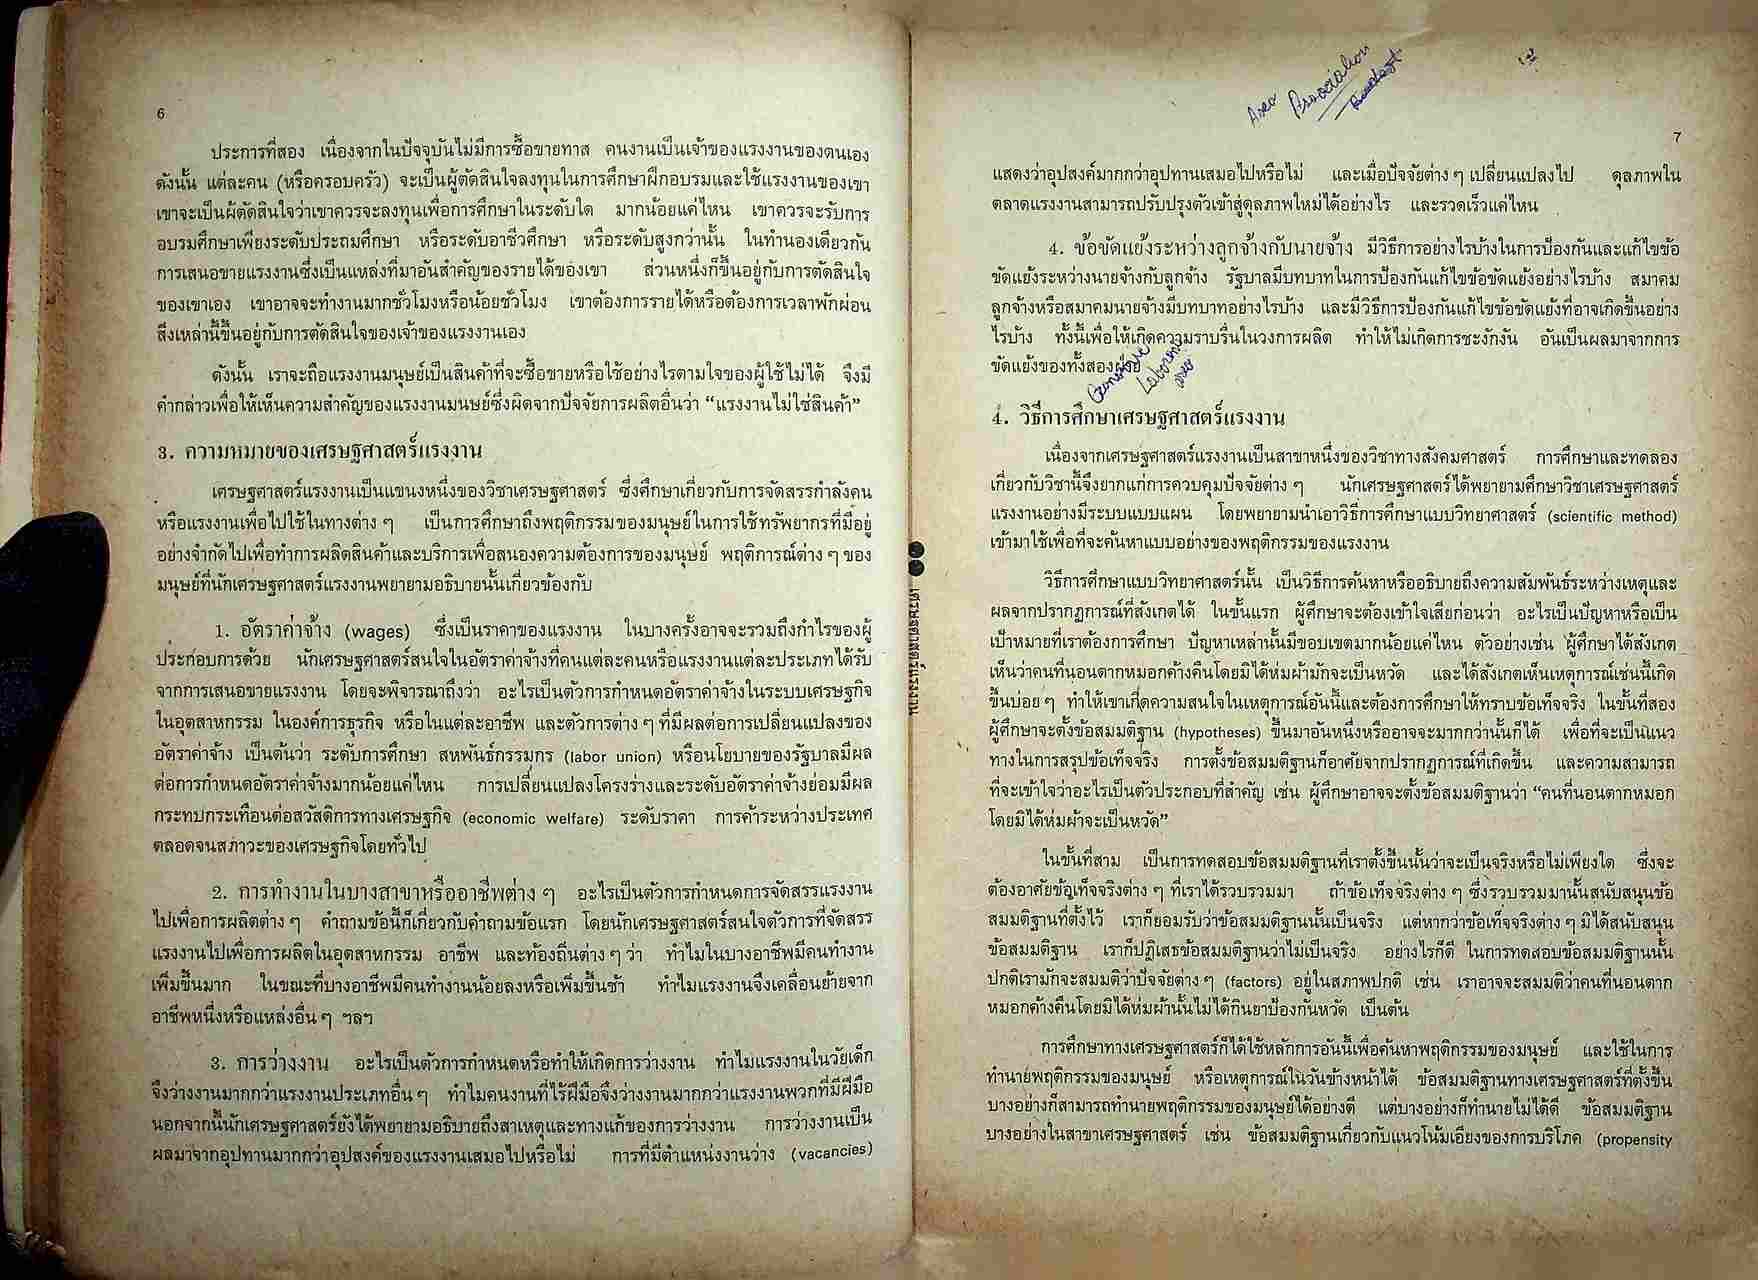 6
ประการที่สอง เนื่องจากในปัจจุบันไม่มีการซื้อขายทาส คนงานเป็นเจ้าของแรงงานของตนเอง
ดังนั้น แต่ละคน (หรือครอบครัว) จะเป็นผู้ตัดสินใจลงทุนในการศึกษาฝึกอบรมและใช้แรงงานของเขา
เขาจะเป็นผู้ตัดสินใจว่าเขาควรจะลงทุนเพื่อการศึกษาในระดับใด มากน้อยแค่ไหน เขาควรจะรับการ
อบรมศึกษาเพียงระดับประถมศึกษา หรือระดับอาชีวศึกษา หรือระดับสูงกว่านั้น ในทำนองเดียวกัน
การเสนอขายแรงงานซึ่งเป็นแหล่งที่มาอันสำคัญของรายได้ของเขา ส่วนหนึ่งก็ขึ้นอยู่กับการตัดสินใจ
ของเขาเอง เขาอาจจะทำงานมากชั่วโมงหรือน้อยชั่วโมง เขาต้องการรายได้หรือต้องการเวลาพักผ่อน
สิ่งเหล่านี้ขึ้นอยู่กับการตัดสินใจของเจ้าของแรงงานเอง
ดังนั้น เราจะถือแรงงานมนุษย์เป็นสินค้าที่จะซื้อขายหรือใช้อย่างไรตามใจของผู้ใช้ไม่ได้ จึงมี
คำกล่าวเพื่อให้เห็นความสำคัญของแรงงานมนุษย์ซึ่งผิดจากปัจจัยการผลิตอื่นว่า “แรงงานไม่ใช่สินค้า”
3. ความหมายของเศรษฐศาสตร์แรงงาน
เศรษฐศาสตร์แรงงานเป็นแขนงหนึ่งของวิชาเศรษฐศาสตร์ ซึ่งศึกษาเกี่ยวกับการจัดสรรกำลังคน
หรือแรงงานเพื่อไปใช้ในทางต่าง ๆ เป็นการศึกษาถึงพฤติกรรมของมนุษย์ในการใช้ทรัพยากรที่มีอยู่
อย่างจำกัดไปเพื่อทำการผลิตสินค้าและบริการเพื่อสนองความต้องการของมนุษย์ พฤติการณ์ต่าง ๆ ของ
มนุษย์ที่นักเศรษฐศาสตร์แรงงานพยายามอธิบายนั้นเกี่ยวข้องกับ
1. อัตราค่าจ้าง (wages) ซึ่งเป็นราคาของแรงงาน ในบางครั้งอาจจะรวมถึงกำไรของผู้
ประกอบการด้วย นักเศรษฐศาสตร์สนใจในอัตราค่าจ้างที่คนแต่ละคนหรือแรงงานแต่ละประเภทได้รับ
จากการเสนอขายแรงงาน โดยจะพิจารณาถึงว่า อะไรเป็นตัวการกำหนดอัตราค่าจ้างในระบบเศรษฐกิจ
ในอุตสาหกรรม ในองค์การธุรกิจ หรือในแต่ละอาชีพ และตัวการต่าง ๆ ที่มีผลต่อการเปลี่ยนแปลงของ
อัตราค่าจ้าง เป็นต้นว่า ระดับการศึกษา สหพันธ์กรรมกร (labor union) หรือนโยบายของรัฐบาลมีผล
ต่อการกำหนดอัตราค่าจ้างมากน้อยแค่ไหน การเปลี่ยนแปลงโครงร่างและระดับอัตราค่าจ้างย่อมมีผล
กระทบกระเทือนต่อสวัสดิการทางเศรษฐกิจ (economic welfare) ระดับราคา การค้าระหว่างประเทศ
ตลอดจนสภาวะของเศรษฐกิจโดยทั่วไป
2. การทำงานในบางสาขาหรืออาชีพต่าง ๆ อะไรเป็นตัวการกำหนดการจัดสรรแรงงาน
ไปเพื่อการผลิตต่าง ๆ คำถามข้อนี้ก็เกี่ยวกับคำถามข้อแรก โดยนักเศรษฐศาสตร์สนใจตัวการที่จัดสรร
แรงงานไปเพื่อการผลิตในอุตสาหกรรม อาชีพ และท้องถิ่นต่าง ๆ ว่า ทำไมในบางอาชีพมีคนทำงาน
เพิ่มขึ้นมาก ในขณะที่บางอาชีพมีคนทำงานน้อยลงหรือเพิ่มขึ้นช้า ทำไมแรงงานจึงเคลื่อนย้ายจาก
อาชีพหนึ่งหรือแหล่งอื่น ๆ ฯลฯ
3. การว่างงาน อะไรเป็นตัวการกำหนดหรือทำให้เกิดการว่างงาน ทำไมแรงงานในวัยเด็ก
จึงว่างงานมากกว่าแรงงานประเภทอื่น ๆ ทำไมคนงานที่ไร้ฝีมือจึงว่างงานมากกว่าแรงงานพวกที่มีฝีมือ
นอกจากนี้นักเศรษฐศาสตร์ยังได้พยายามอธิบายถึงสาเหตุและทางแก้ของการว่างงาน การว่างงานเป็น
ผลมาจากอุปทานมากกว่าอุปสงค์ของแรงงานเสมอไปหรือไม่ การที่มีตำแหน่งงานว่าง (vacancies)
เศรษฐศาสตร์แรงงาน
7
แสดงว่าอุปสงค์มากกว่าอุปทานเสมอไปหรือไม่ และเมื่อปัจจัยต่าง ๆ เปลี่ยนแปลงไป ดุลภาพใน
ตลาดแรงงานสามารถปรับปรุงตัวเข้าสู่ดุลภาพใหม่ได้อย่างไร และรวดเร็วแค่ไหน
4. ข้อขัดแย้งระหว่างลูกจ้างกับนายจ้าง มีวิธีการอย่างไรบ้างในการป้องกันและแก้ไขข้อ
ขัดแย้งระหว่างนายจ้างกับลูกจ้าง รัฐบาลมีบทบาทในการป้องกันแก้ไขข้อขัดแย้งอย่างไรบ้าง สมาคม
ลูกจ้างหรือสมาคมนายจ้างมีบทบาทอย่างไรบ้าง และมีวิธีการป้องกันแก้ไขข้อขัดแย้งที่อาจเกิดขึ้นอย่าง
ไรบ้าง ทั้งนี้เพื่อให้เกิดความราบรื่นในวงการผลิต ทำให้ไม่เกิดการชะงักงัน อันเป็นผลมาจากการ
ขัดแย้งของทั้งสองฝ่าย
4. วิธีการศึกษาเศรษฐศาสตร์แรงงาน
เนื่องจากเศรษฐศาสตร์แรงงานเป็นสาขาหนึ่งของวิชาทางสังคมศาสตร์ การศึกษาและทดลอง
เกี่ยวกับวิชานี้จึงยากแก่การควบคุมปัจจัยต่าง ๆ นักเศรษฐศาสตร์ได้พยายามศึกษาวิชาเศรษฐศาสตร์
แรงงานอย่างมีระบบแบบแผน โดยพยายามนำเอาวิธีการศึกษาแบบวิทยาศาสตร์ (scientific method)
เข้ามาใช้เพื่อที่จะค้นหาแบบอย่างของพฤติกรรมของแรงงาน
วิธีการศึกษาแบบวิทยาศาสตร์นั้น เป็นวิธีการค้นหาหรืออธิบายถึงความสัมพันธ์ระหว่างเหตุและ
ผลจากปรากฏการณ์ที่สังเกตได้ ในขั้นแรก ผู้ศึกษาจะต้องเข้าใจเสียก่อนว่า อะไรเป็นปัญหาหรือเป็น
เป้าหมายที่เราต้องการศึกษา ปัญหาเหล่านั้นมีขอบเขตมากน้อยแค่ไหน ตัวอย่างเช่น ผู้ศึกษาได้สังเกต
เห็นว่าคนที่นอนตากหมอกค้างคืนโดยมิได้ห่มผ้ามักจะเป็นหวัด และได้สังเกตเห็นเหตุการณ์เช่นนี้เกิด
ขึ้นบ่อย ๆ ทำให้เขาเกิดความสนใจในเหตุการณ์อันนี้และต้องการศึกษาให้ทราบข้อเท็จจริง ในขั้นที่สอง
ผู้ศึกษาจะตั้งข้อสมมติฐาน (hypotheses) ขึ้นมาอันหนึ่งหรืออาจจะมากกว่านั้นก็ได้ เพื่อที่จะเป็นแนว
ทางในการสรุปข้อเท็จจริง การตั้งข้อสมมติฐานก็อาศัยจากปรากฏการณ์ที่เกิดขึ้น และความสามารถ
ที่จะเข้าใจว่าอะไรเป็นตัวประกอบที่สำคัญ เช่น ผู้ศึกษาอาจจะตั้งข้อสมมติฐานว่า “คนที่นอนตากหมอก
โดยมิได้ห่มผ้าจะเป็นหวัด”
ในขั้นที่สาม เป็นการทดสอบข้อสมมติฐานที่เราตั้งขึ้นนั้นว่าจะเป็นจริงหรือไม่เพียงใด ซึ่งจะ
ต้องอาศัยข้อเท็จจริงต่าง ๆ ที่เราได้รวบรวมมา ถ้าข้อเท็จจริงต่าง ๆ ซึ่งรวบรวมมานั้นสนับสนุนข้อ
สมมติฐานที่ตั้งไว้ เราก็ยอมรับว่าข้อสมมติฐานนั้นเป็นจริง แต่หากว่าข้อเท็จจริงต่าง ๆ มิได้สนับสนุน
ข้อสมมติฐาน เราก็ปฏิเสธข้อสมมติฐานว่าไม่เป็นจริง อย่างไรก็ดี ในการทดสอบข้อสมมติฐานนั้น
ปกติเรามักจะสมมติว่าปัจจัยต่าง ๆ (factors) อยู่ในสภาพปกติ เช่น เราอาจจะสมมติว่าคนที่นอนตาก
หมอกค้างคืนโดยมิได้ห่มผ้านั้นไม่ได้กินยาป้องกันหวัด เป็นต้น
การศึกษาทางเศรษฐศาสตร์ก็ได้ใช้หลักการอันนี้เพื่อค้นหาพฤติกรรมของมนุษย์ และใช้ในการ
ทำนายพฤติกรรมของมนุษย์ หรือเหตุการณ์ในวันข้างหน้าได้ ข้อสมมติฐานทางเศรษฐศาสตร์ที่ตั้งขึ้น
บางอย่างก็สามารถทำนายพฤติกรรมของมนุษย์ได้อย่างดี แต่บางอย่างก็ทำนายไม่ได้ดี ข้อสมมติฐาน
บางอย่างในสาขาเศรษฐศาสตร์ เช่น ข้อสมมติฐานเกี่ยวกับแนวโน้มเอียงของการบริโภค (propensity